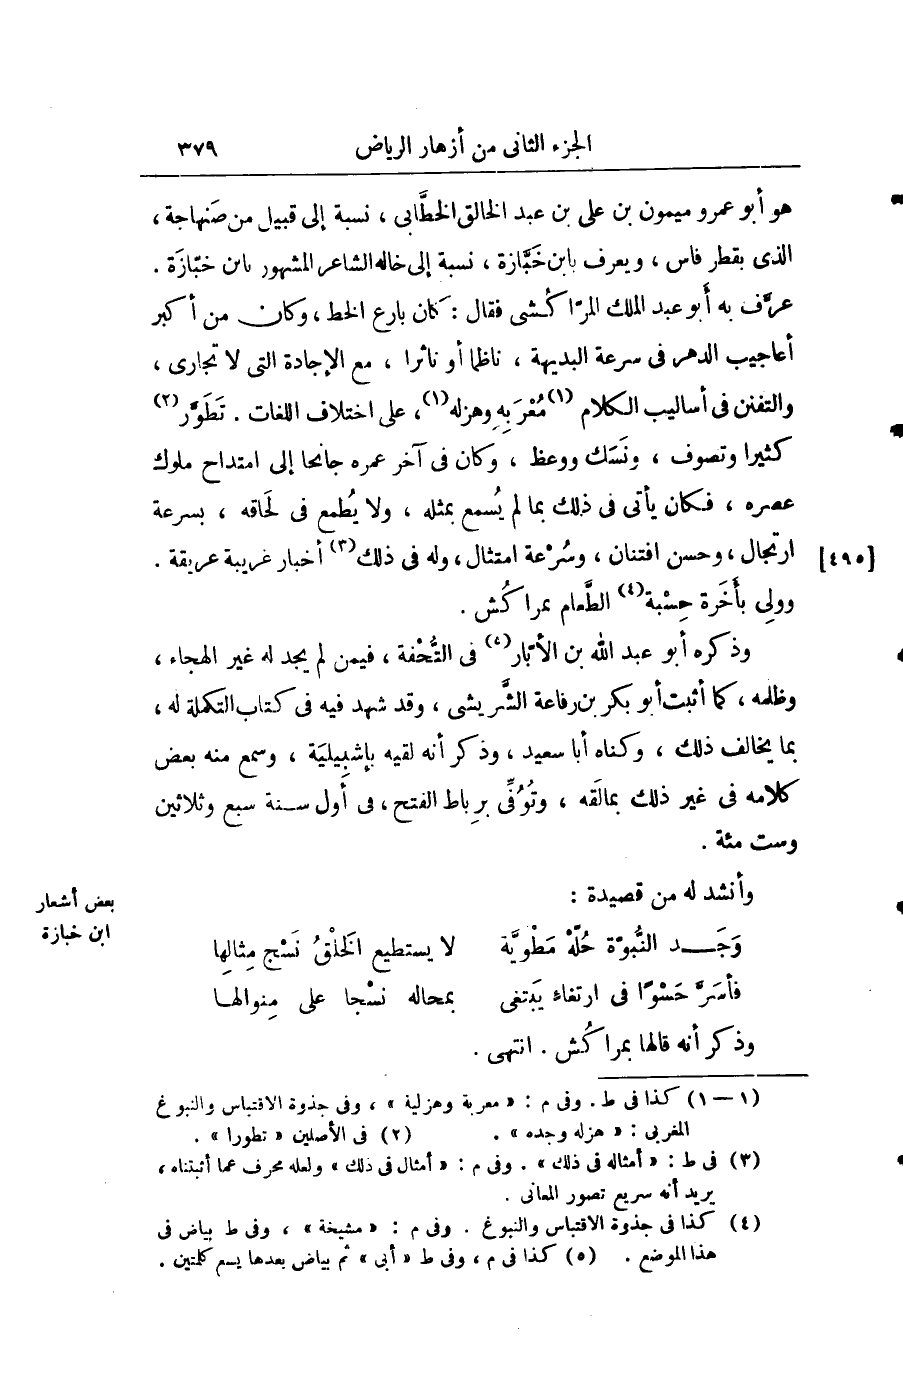 الجزء الثانى من أزهار الرياض ٣٧٩
هو أبو عمرو ميمون بن على بن عبد الخالق الخطَّابى ، نسبة إلى قبيل من صَنهاجة ،
الذى بقطر فاس ، ويعرف بابن خَبَّازة ، نسبة إلى خاله الشاعر المشهور بابن خبّازَة .
عرَّف به أبو عبد الملك المرّاكُشى فقال : كان بارع الخط ، وكان من أكبر
أعاجيب الدهر فى سرعة البديهة ، ناظما أو ناثرا ، مع الإجادة التى لا تجارى ،
والتفنن فى أساليب الكلام (١) مُعْرَبِهِ وهزله (١) ، على اختلاف اللغات . تَطَوَّر (٢)
كثيرا وتصوف ، ونَسَك ووعظ ، وكان فى آخر عمره جانحا إلى امتداح ملوك
عصره ، فكان يأتى فى ذلك بما لم يُسمع بمثله ، ولا يُطمع فى لَحاقه ، بسرعة
ارتجال ، وحسن افتنان ، وسُرْعة امتثال ، وله فى ذلك (٣) أخبار غريبة عريقة . [٤٩٥]
وولى بأَخَرة حِسْبة (٤) الطَّعام بمراكُش .
وذكره أبو عبد الله بن الأبّار (٤) فى التُّحْفة ، فيمن لم يجد له غير الهجاء ،
وظلمه ، كما أثبت أبو بكر بن رفاعة الشَّريشى ، وقد شهد فيه فى كتاب التكملة له ،
بما يخالف ذلك ، وكناه أبا سعيد ، وذكر أنه لقيه بإشبِيليَة ، وسمع منه بعض
كلامه فى غير ذلك بمالَقه ، وتُوُفِّى برِباط الفتح ، فى أول سنة سبع وثلاثين
وست مئة .
بعض أشعار
ابن خبازة
وأنشد له من قصيدة :
وَجَـد النُّبوّة حُلّةً مَطْويَّة لا يستطيع الَخلْقُ نَسْج مِثالِها
فأسَرَّ حَسْوًا فى ارتغاء يَبتغى بمحاله نسْجا على مِنوالها
وذكر أنه قالها بمراكُش . انتهى .
(١ — ١) كذا فى ط . وفى م : « معربة وهزلية » ، وفى جذوة الاقتباس والنبوغ
المغربى : « هزله وجده » . (٢) فى الأصلين « تطورا » .
(٣) فى ط : « أمثاله فى ذلك » . وفى م : « أمثال فى ذلك » ولعله محرف عما أثبتناه ،
يريد أنه سريع تصور المعانى .
(٤) كذا فى جذوة الاقتباس والنبوغ . وفى م : « مشيخة » ، وفى ط بياض فى
هذا الموضع . (٥) كذا فى م ، وفى ط « أبى » ثم بياض بعدها يسع كلمتين .